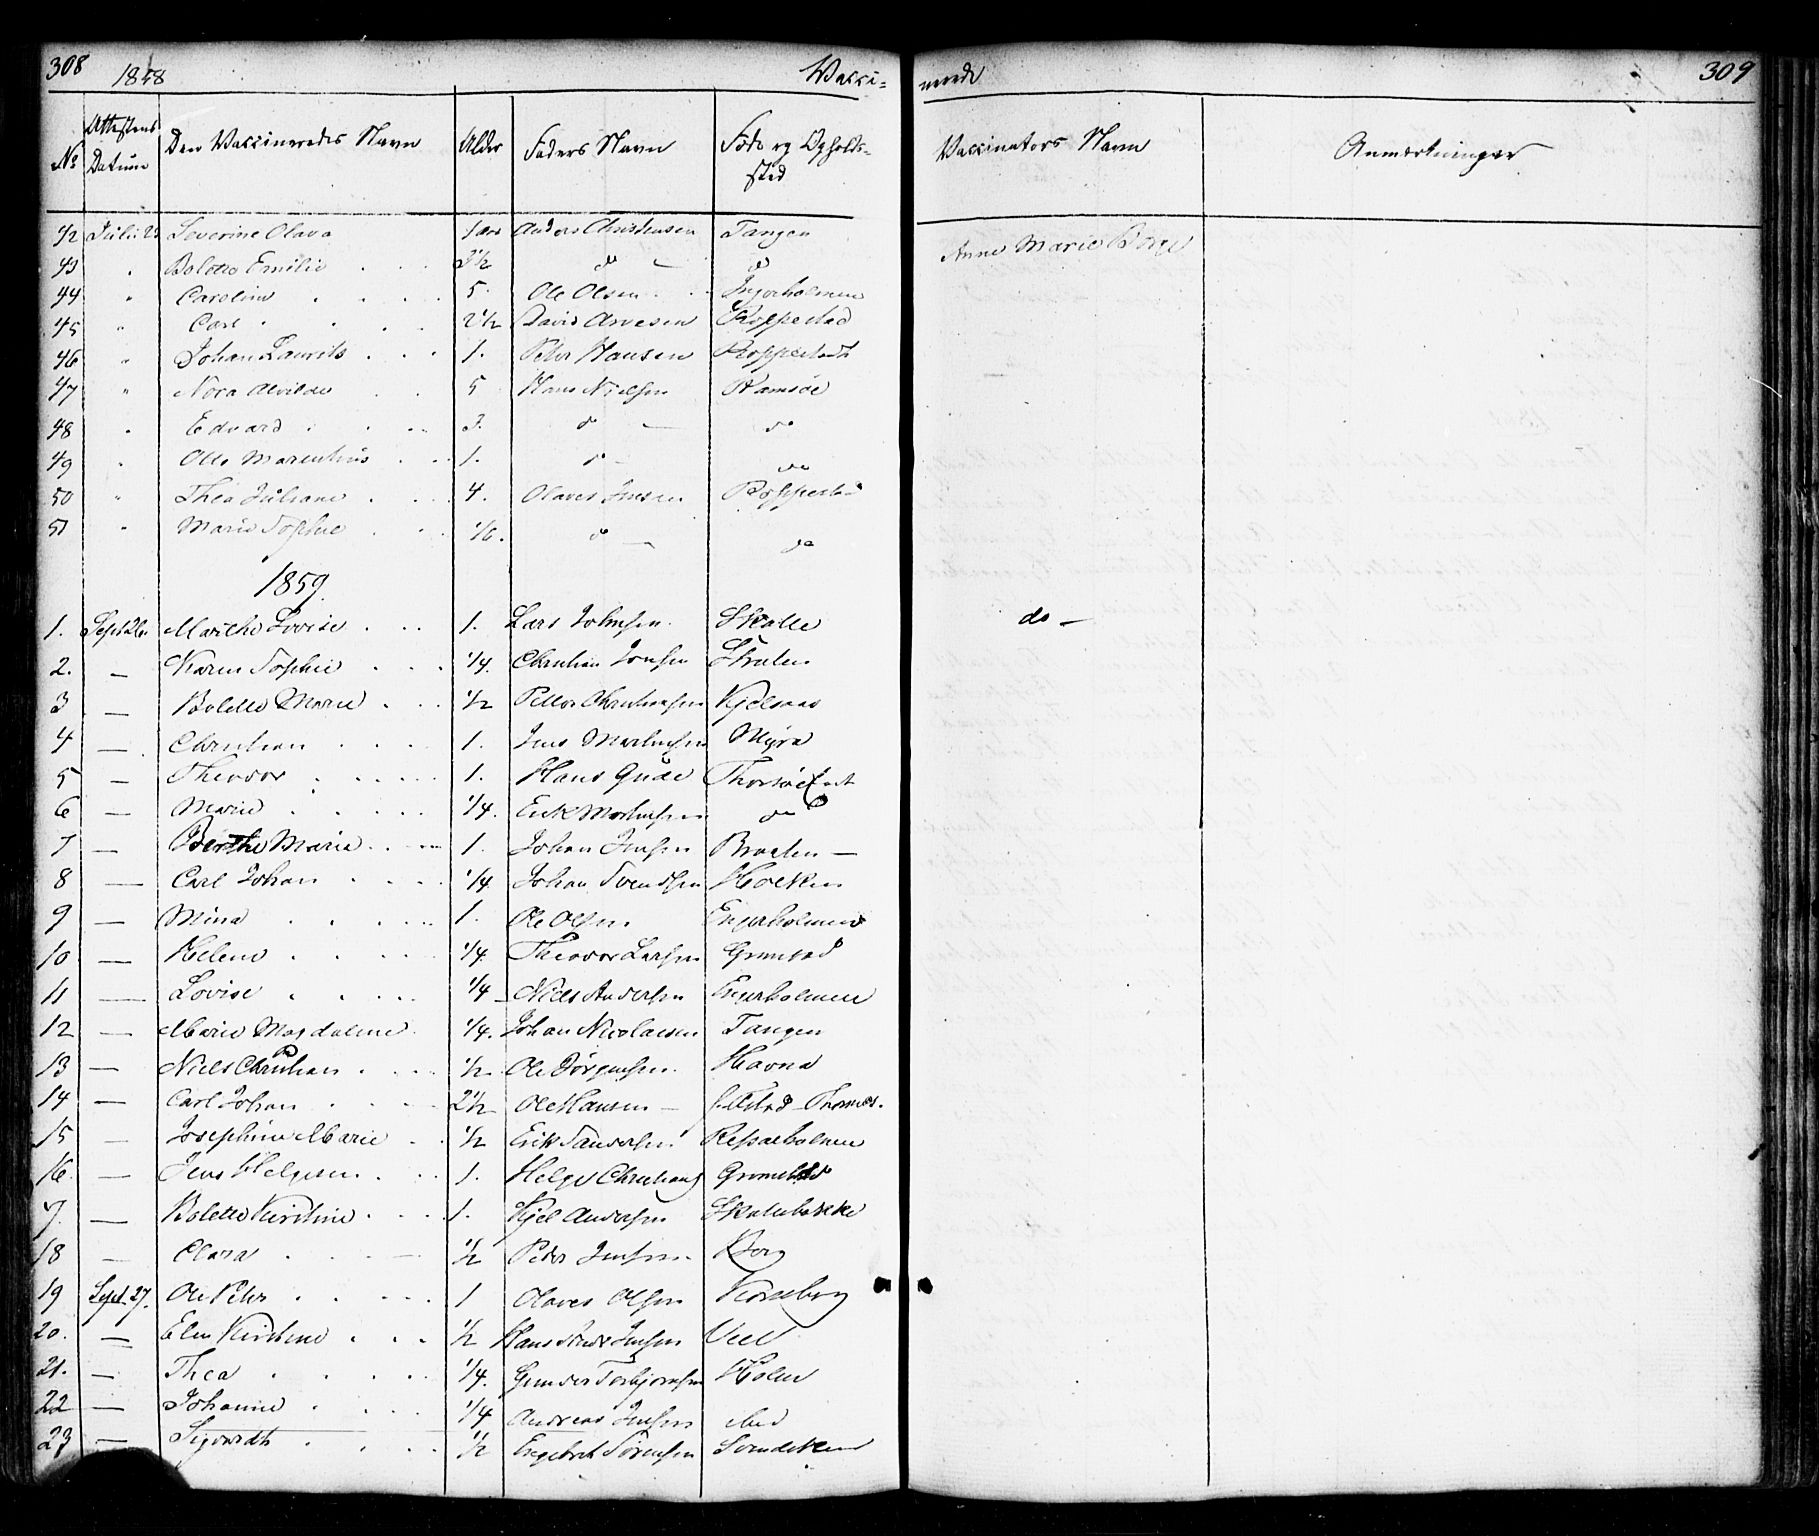 308 1858 Vacci-
nerede 309
No Attestens Datum Den Vaccineredes Navn Alder Faders Navn Føde og Opholds-sted Vaccinators Navn Anmærkninger
42 Juli 23 Severine Olava 1 aar Anders Christensen Tangen Anne Marie Borge
43 " Bolette Emilie 2½ do — do
44 " Caroline 5 Ole Olsen
45 " Carl 2½ David Arvesen Roppestad
46 " Johan Laurits 1. Peter Hansen Roppestadt
47 " Nora Alvilde 5 Hans Nielsen Ramsøe
48 " Edvard 3. do — do
49 " Otto Marenthius 1. do — do
50 " Thea Juliane 4. Olaves Jensen Roppestad
51 " Marie Sophie 1/6. do — do
1859
1. Sept 26. Marthe Lovise 1. Lars Johnsen Skalle do —
2. — Karen Sophie 1/4. Christian Jensen
3 — Bolette Marie 1/2 Petter Christensen Kjelsaas
4 — Christian 1. Jens Martinsen Myra
5 — Theodor 1. Hans Gude Thorsøe
6 — Marie 1/4. Erik Mortensen do
7 — Berthe Marie 1. Johan Jensen Braaten —
8 — Carl Johan 1/4 Johan Svendsen
9 — Mina 1. Ole Olsen Engerholmen
10 — Helene 1/4. Theodor Larsen Grimstad
11 — Lovise 1/4 Niels Andersen Engerholmen
12 — Marie Magdalene 1/4. Johan Nicolaesen Tangen
13 — Niels Christian 1/2. Ole Jørgensen Havna
14 — Carl Johan 2½ Ole Hansen —
15 — Josephine Marie 1/2 Erik Andersen
16. — Jens Helgesen 1. Helge Christians Grimstad
7. — Bolette Kirstine 1. Kjel Andersen Skallebakke
18 — Clara 1/2 Peder Jensen Borg
19 Sept. 27. Ole Peter 1 Olaves Olsen
20. — Elen Kirstine 1/2 Hans Jensen Veel
21. — Thea 1/4. Gunder Torbjørnsen Holm
22 — Johanne 1/4 Andreas Jensen
23 — Sigvardt 1/2 Engebret Sørensen